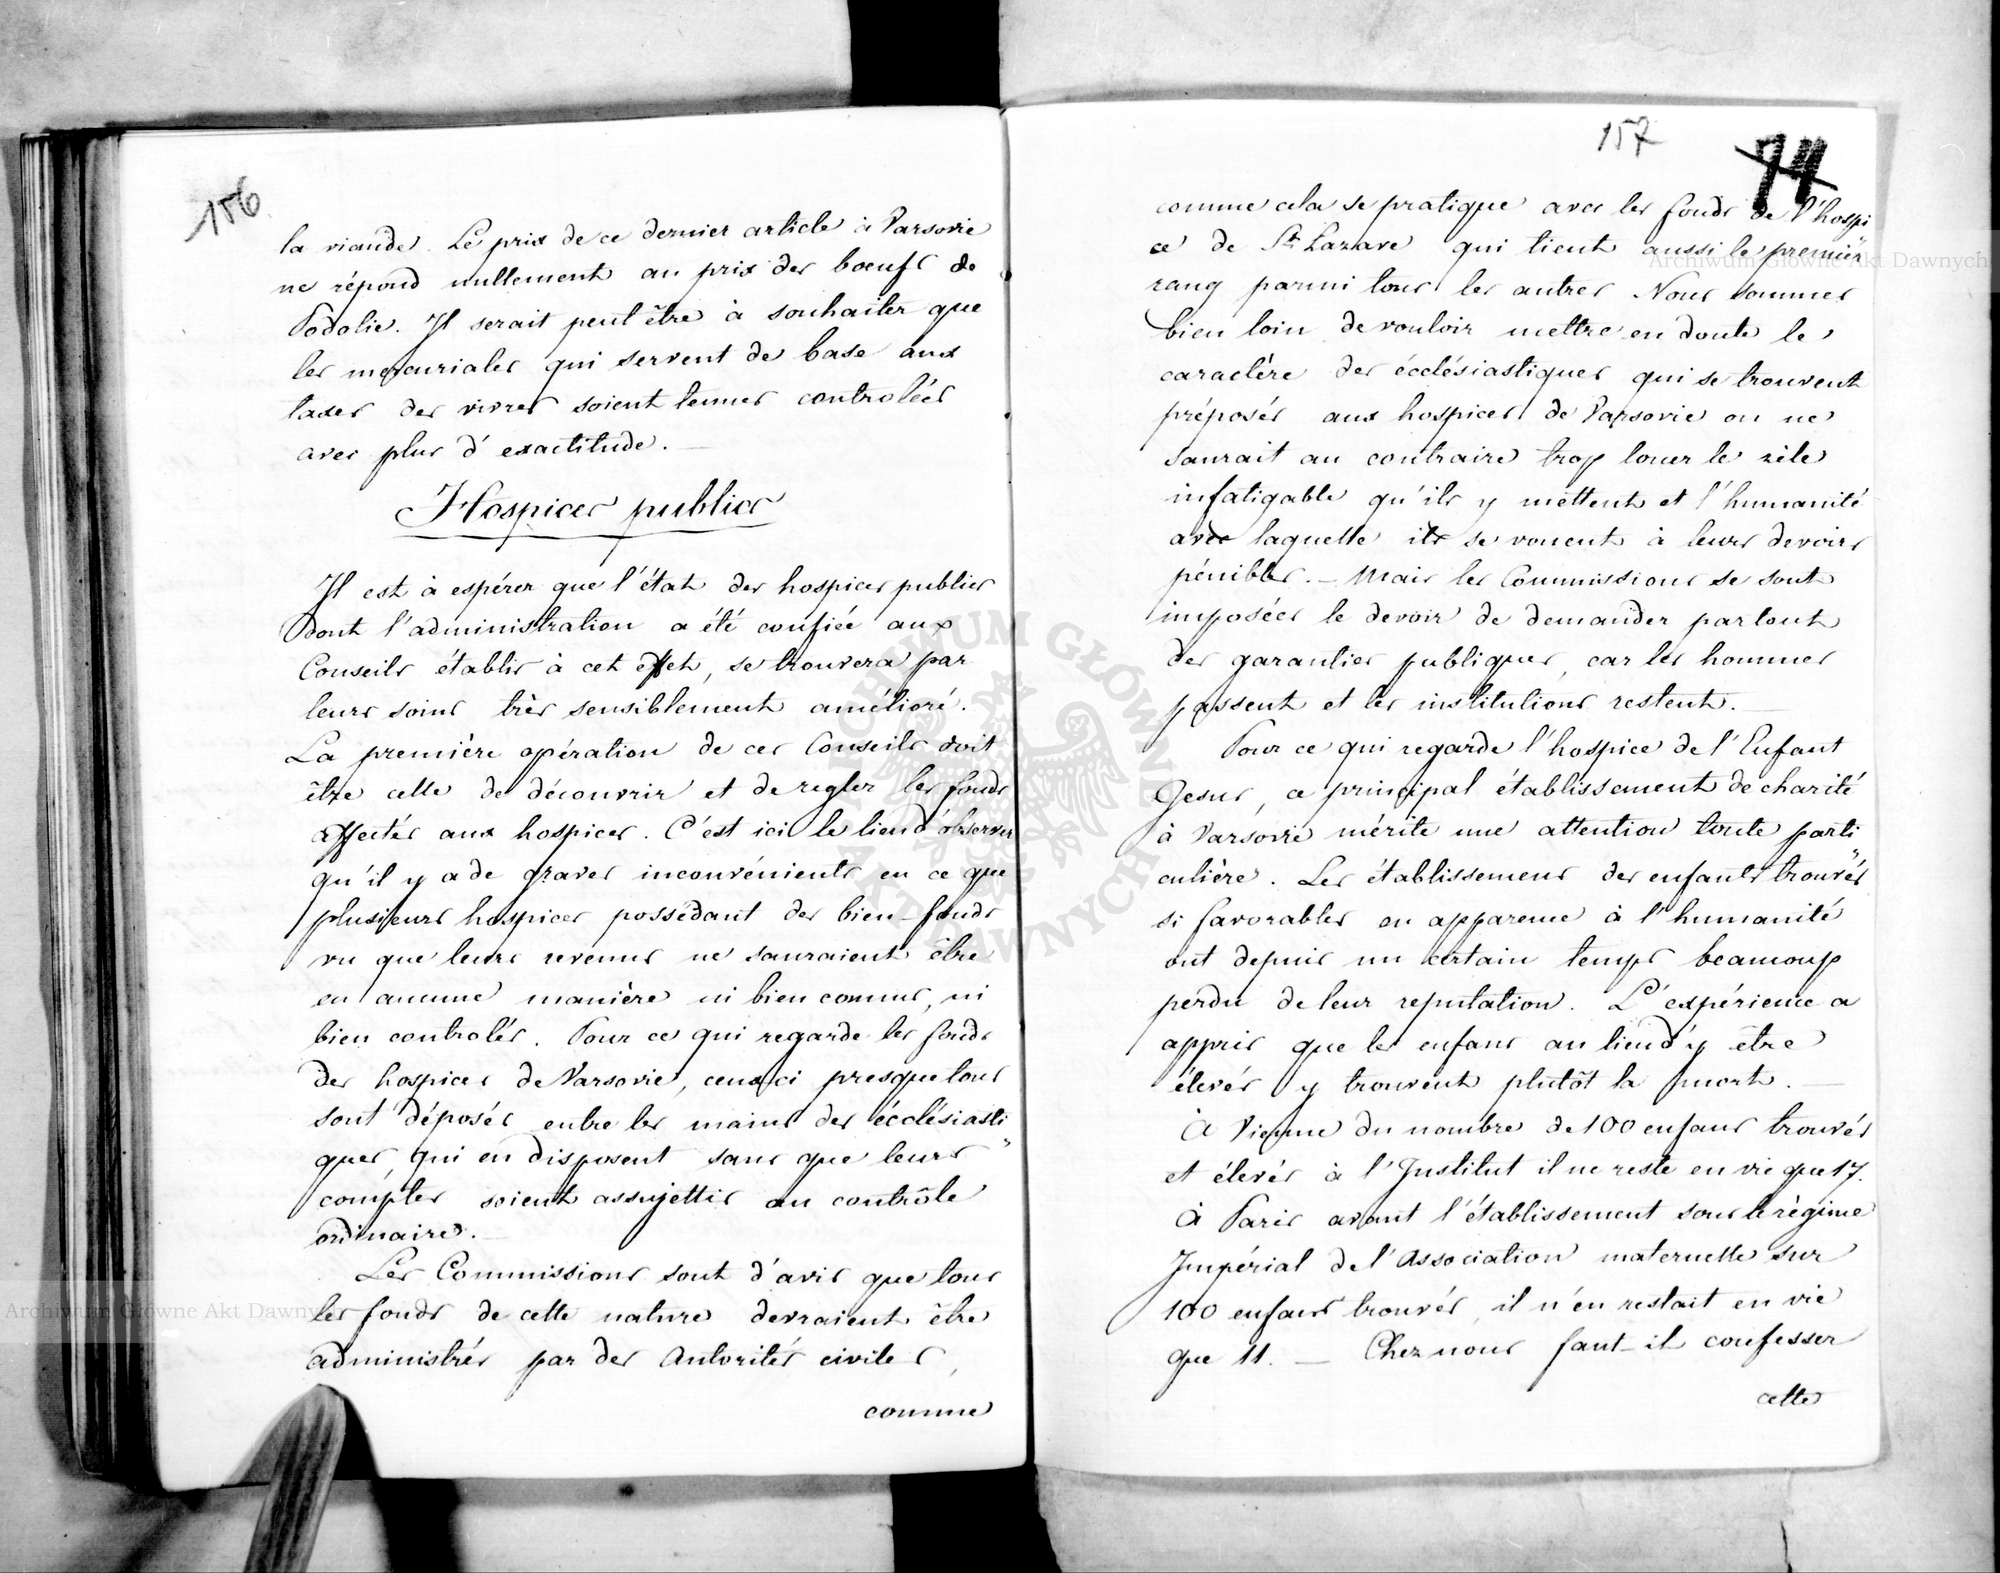 156
la viande. Le prix de ce dernier article à Varsovie
ne répond nullement au prix des boeufs de
Podolie. Il serait peut être à souhaiter que
les mercuriales qui servent de base aux
taxes des vivres soient tenues controlées
avec plus d'exactitude. —
Hospices publics
Il est à espérer que l'état des hospices publics
dont l'administration a été confiée aux
Conseils établis à cet effet, se trouvera par
leurs soins très sensiblement amélioré.
La première opération de ces Conseils doit
être celle de découvrir et de regler les fonds
affectés aux hospices. C'est ici le lieu d'observer
qu'il y a de graves inconvénients en ce que
plusieurs hospices possédant des bien-fonds
vu que leurs revenus ne sauraient être
en aucune manière ni bien connus, ni
bien controlés. Pour ce qui regarde les fonds
des hospices de Varsovie, ceux ci presque tous
sont déposés entre les mains des écclésiasti
ques, qui en disposent sans que leurs
comptes soient assujettis au contrôle
ordinaire. —
Les Commissions sont d'avis que tous
les fonds de cette nature devraient être
administrés par des Autorités civiles,
comme
157
74
comme cela se pratique avec les fonds de l'hospi
ce de St Lazare qui tient aussi le premier
rang parmi tous les autres Nous sommes
bien loin de vouloir mettre en doute le
caractère des écclésiastiques qui se trouvent
préposés aux hospices de Varsovie on ne
saurait au contraire trop louer le zèle
infatigable qu'ils y mettent et l'humanité
avec laquelle ils se vouent à leurs devoirs
pénibles. — Mais les Commissions se sont
imposées le devoir de demander partout
des garanties publiques, car les hommes
passent et les institutions restent. —
Pour ce qui regarde l'hospice de l'Enfant
Jesus, ce principal établissement de charité
à Varsovie mérite une attention toute parti
culière. Les établissemens des enfants trouvés
si favorables en apparence à l'humanité
ont depuis un certain temps beaucoup
perdu de leur reputation. L'expérience a
appris que les enfans au lieu d'y être
élevés y trouvent plutôt la mort. —
À Vienne du nombre de 100 enfans trouvés
et élevés à l'Institut il ne reste en vie que 17.
À Paris avant l'établissement sous le règime
Impérial de l'Association maternelle sur
100 enfans trouvés, il n'en restait en vie
que 11. — Chez nous faut-il confesser
cette
Archiwum Główne Akt Dawnych
Archiwum Główne Akt Dawnych
ARCHIWUM GŁÓWNE AKT DAWNYCH